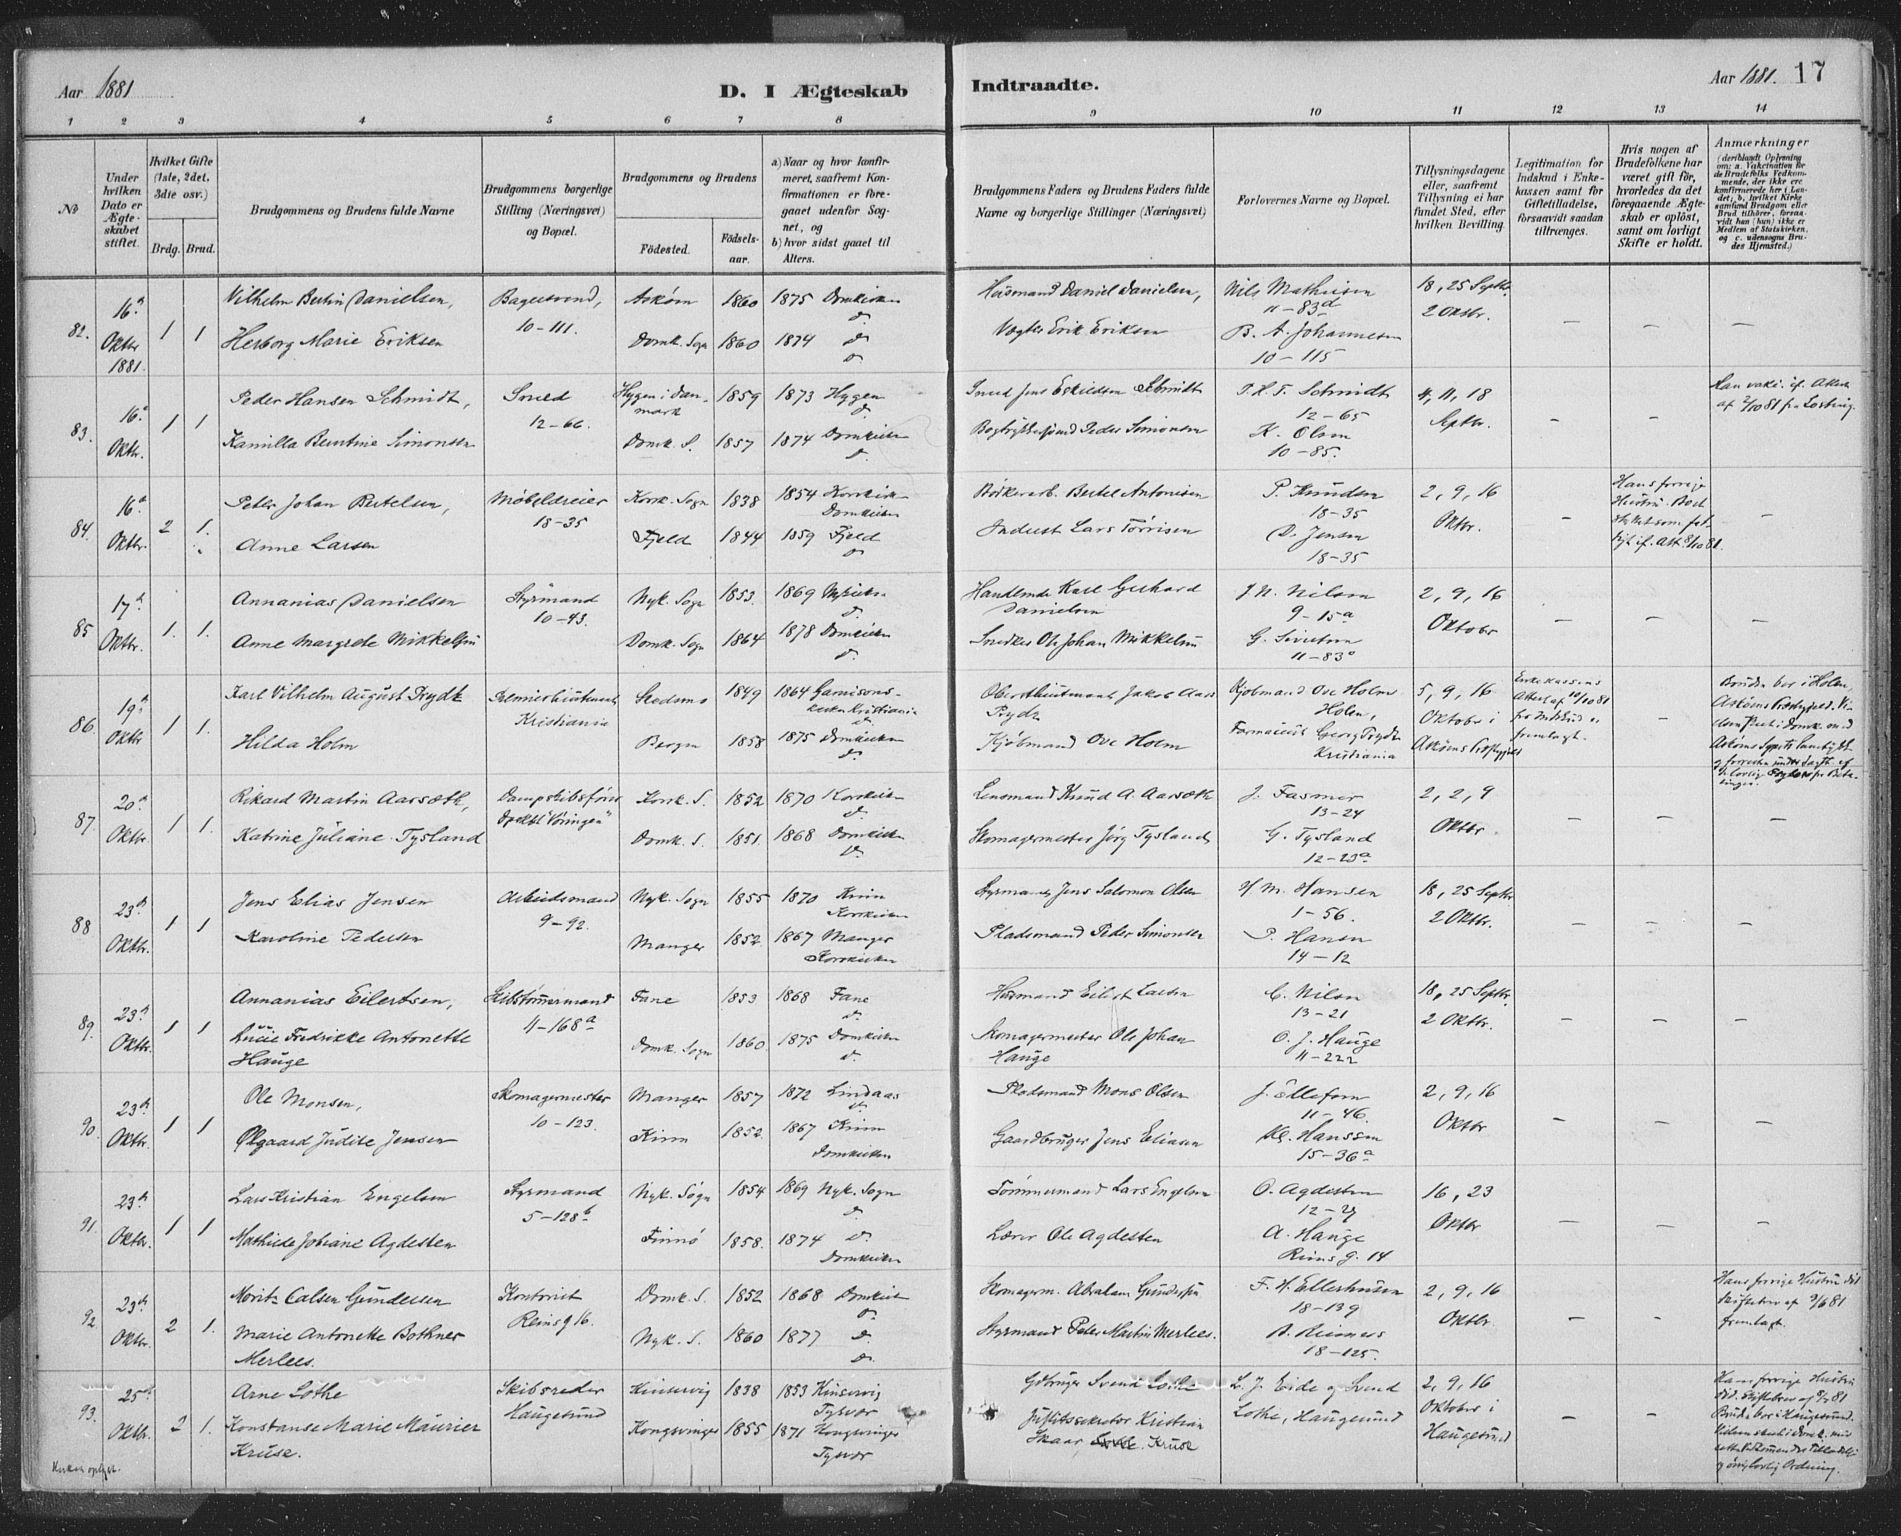 Aar 1881
D. I Ægteskab
Indtraadte.
Aar 1881. 17
1 2 3 4 5 6 7 8 9 10 11 12 13 14
No
Under hvilken Dato er Ægteskabet stiftet.
Hvilket Gifte (1ste, 2det, 3die osv.)
Brdg. Brud.
Brudgommens og Brudens fulde Navne
Brudgommens borgerlige Stilling (Næringsvei) og Bopæl.
Brudgommens og Brudens
Fødested. Fødselsaar.
a) Naar og hvor konfirmeret, saafremt Konfirmationen er foregaaet udenfor Sognet, og
b) hvor sidst gaaet til Alters.
Brudgommens Faders og Brudens Faders fulde Navne og borgerlige Stillinger (Næringsvei)
Forlovernes Navne og Bopæl.
Tillysningsdagene eller, saafremt Tillysning ei har fundet Sted, efter hvilken Bevilling.
Legitimation for Indskud i Enkekassen samt for Giftetilladelse, forsaavidt saadan tiltrænges.
Hvis nogen af Brudefolkene har været gift før, hvorledes da det foregaaende Ægteskab er opløst, samt om lovligt Skifte er holdt.
Anmærkninger
82. 16de Oktbr. 1881. 1 1
Vilhelm Bertin Danielsen, 10-111. Askøen 1860 1875 Domkirken
Husmand Daniel Danielsen, Nils Mathisen 11-83d 18, 25 Septbr. 2 Oktbr.
Herborg Marie Eriksen Domk. Sogn 1860 1874 do
Vægter Erik Eriksen B. A. Johannesen 10-115
83. 16de Oktbr. 1 1
Peder Hansen Schmidt, Smed 12-66. Danmark 1859 1873
Smed Jens Eskildsen Schmidt Schmidt 12-65 4, 11, 18 Septbr.
Kamilla Berntine Simonsen Domk. S. 1857 1874 Domkirken
Peder Simonsen K. Olsen 10-85.
84. 16de Oktbr. 2 1.
Peter Johan Bertelsen, Møbelhandler 18-35 Korsk. Sogn 1838 1854 Korskirken Domkirken
Bertel Antonisen P. Knudsen 18-35 2, 9, 16 Oktbr.
Anne Larsen Fjeld 1844 1859 Fjeld do
Lars Tørrisen D. Jensen 18-35
85 17de Oktbr. 1. 1.
Annanias Danielsen Styrmand 10-43. Nyk. Sogn 1853. 1869 Nykirken
Karl Gerhard Danielsen J. N. Nilsen 9-15a 2, 9, 16 Oktober
Anne Margrete Mikkelsen Domk. Sogn 1864 1878 Domkirken
Snedker Ole Johan Mikkelsen G. Sivertsen 11-83
86. 19de Oktbr 1 1.
Karl Vilhelm August Prydz Premierlieutenant Kristiania 1849 1864 Garnisonskirken Kristiania
Oberstlieutenant Jakob Aars Prydz Kjøbmand Ove Holm Holen, 5, 9, 16 Oktober i Askøens Præstegjeld
Hilda Holm Bergen 1858 1875 Domkirken
Kjøbmand Ove Holm Farmaceut Georg Prydz Kristiania
87. 20de Oktbr. 1 1.
Rikard Martin Aarsæth, Dampskibsfører Korsk. S. 1852 1870 Korskirken
Lensmand Knud A. Aarsæth J. Fasmer 13-24 2, 2, 9 Oktbr
Katrine Juliane Tysland Domk. S. 1851. 1868 Domkirken
Skomagermester Jørg Tysland G. Tysland 12-23a
88 23de Oktbr. 1 1
Jens Elias Jensen Arbeidsmand 9-92. Nyk. Sogn 1855 1870 Kinn Korskirken
Styrmand Jens Salomon Olsen H. M. Hansen 1-56. 18, 25 Septbr 2 Oktbr.
Karoline Pedersen Manger 1852. 1867 Manger Korskirken
Pladsmand Peder Simonsen P. Hansen 14-12
89. 23de Oktbr. 1 1
Annanias Eilertsen, Skibstømmermand 11-168a Fane 1853 1868 Fane
Husmand Eilert Larsen C. Nilsen 13-21 18, 25 Septbr. 2 Oktbr.
Lucie Fredrikke Antonette Hauge Domk. Sogn 1860. 1875 Domkirken
Skomagermester Ole Johan Hauge O. J. Hauge 11-222
90. 23de Oktbr. 1 1
Ole Monsen, Skomagermester 10-123. Manger 1857 1872 Lindaas
Pladsmand Mons Olsen J. Ellefsen 11-46. 2, 9, 16 Oktbr
Ølgaard Judite Jensen Kinn 1852. 1867 Kinn Domkirken
Gaardbruger Jens Eliasen Kl. Hanssen 15-36a
91. 23de Oktbr. 1 1
Lars Kristian Engelsen Styrmand 5-128b Nyk. Sogn 1854 1869 Nyk. Sogn
Tømmermand Lars Engelsen O. Agdesten 12-27 16, 23 Oktbr
Mathilde Johanne Agdesten Finnø 1858. 1874 do Domkirken
Lærer Ole Agdesten A. Hauge Reinsg. 14
92 23de Oktbr. 2 1.
Moritz Calsen Gundersen Kontorist Reinsg 16. Domk. S. 1852 1868 Domkirken
Skomagerm. Abraham Gundersen F. H. Ellerhusen 18-139 2, 9, 16 Oktbr.
Hans forrige Hustru død Skiftebrev af 2/6 81 fremlagt.
Marie Antonette Bothner Merlees. Nyk. S. 1860 1877 do
Styrmand Peter Martin Merlees. B. Reimers 18-125.
93. 25de Oktbr. 2 1.
Arne Lothe Skibsreder Haugesund Kinservig 1838 1853 Kinservig Tysvær
Gdbruger Svend Lothe L. J. Eide og Svend Lothe, Haugesund 2, 9, 16 Oktober i Haugesund
Konstanse Marie Maurier Kruse. Kongsvinger 1855 1871 Kongsvinger Tysvær
Justitssekretær Kristian Skaar Kruse